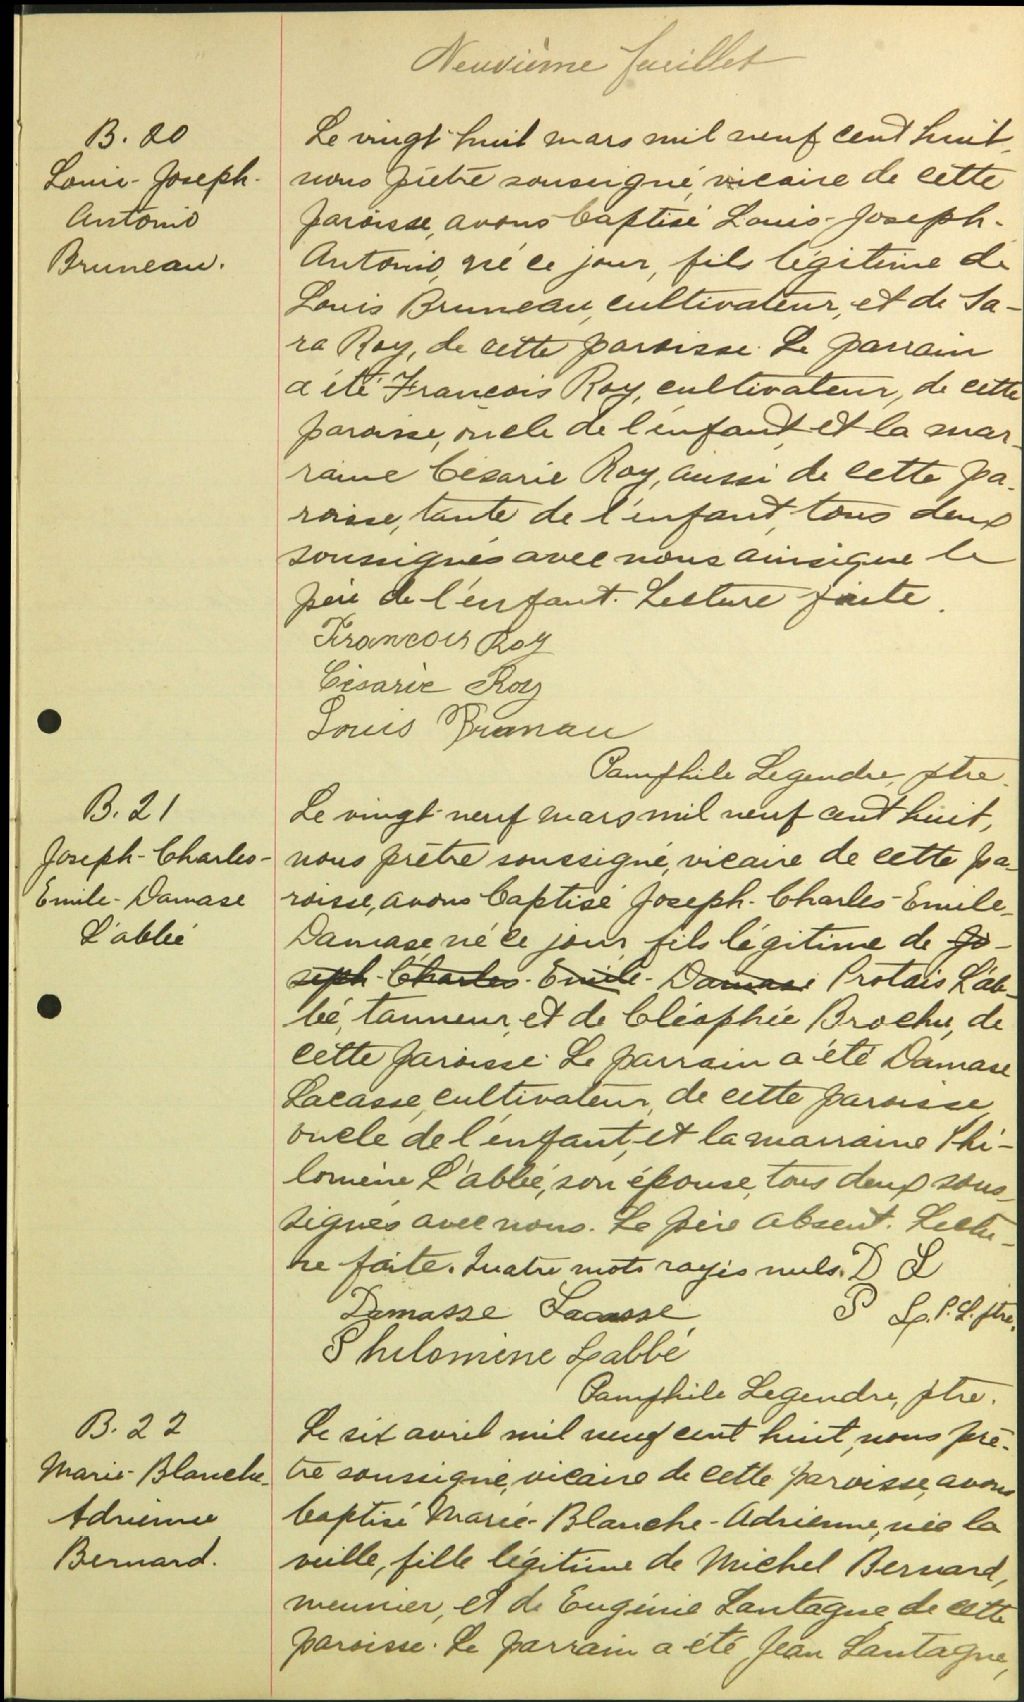 Neuvième feuillet
B. 20
Louis-Joseph-
Antonio
Bruneau.
Le vingt huit mars mil neuf cent huit,
nous prêtre soussigné, vicaire de cette
paroisse, avons baptisé Louis-Joseph-
Antonio, né ce jour, fils légitime de
Louis Bruneau, cultivateur, et de Sa-
ra Roy, de cette paroisse. Le parrain
a été François Roy, cultivateur, de cette
paroisse, oncle de l'enfant, et la mar-
raine Césarie Roy, aussi de cette pa-
roisse, tante de l'enfant, tous deux
soussignés avec nous ainsi que le
père de l'enfant. Lecture faite.
Francois Roy
Césarie Roy
Louis Brunau
Pamphile Legendre, ptre.
B. 21
Joseph-Charles-
Emile-Damase
L'abbé
Le vingt-neuf mars mil neuf cent huit,
nous prêtre soussigné, vicaire de cette pa-
roisse, avons baptisé Joseph-Charles-Emile-
Damase, né ce jour, fils légitime de Jo-
seph-Charles-Emile-Damase Protais L'ab-
bé, tanneur, et de Cléophée Brochu, de
cette paroisse. Le parrain a été Damase
Lacasse, cultivateur, de cette paroisse,
oncle de l'enfant, et la marraine Phi-
lomène L'abbé, son épouse, tous deux sous-
signés avec nous. Le père absent. Lectu-
re faite. Quatre mots rayés nuls. D L
Damasse Lacasse P L. P. L. ptre.
Philomène Labbé
Pamphile Legendre, ptre.
B. 22
Marie-Blanche-
Adrienne
Bernard.
Le six avril mil neuf cent huit, nous prê-
tre soussigné, vicaire de cette paroisse, avons
baptisé Marie-Blanche-Adrienne, née la
veille, fille légitime de Michel Bernard,
meunier, et de Eugénie Lantagne, de cette
paroisse. Le parrain a été Jean Lantagne,